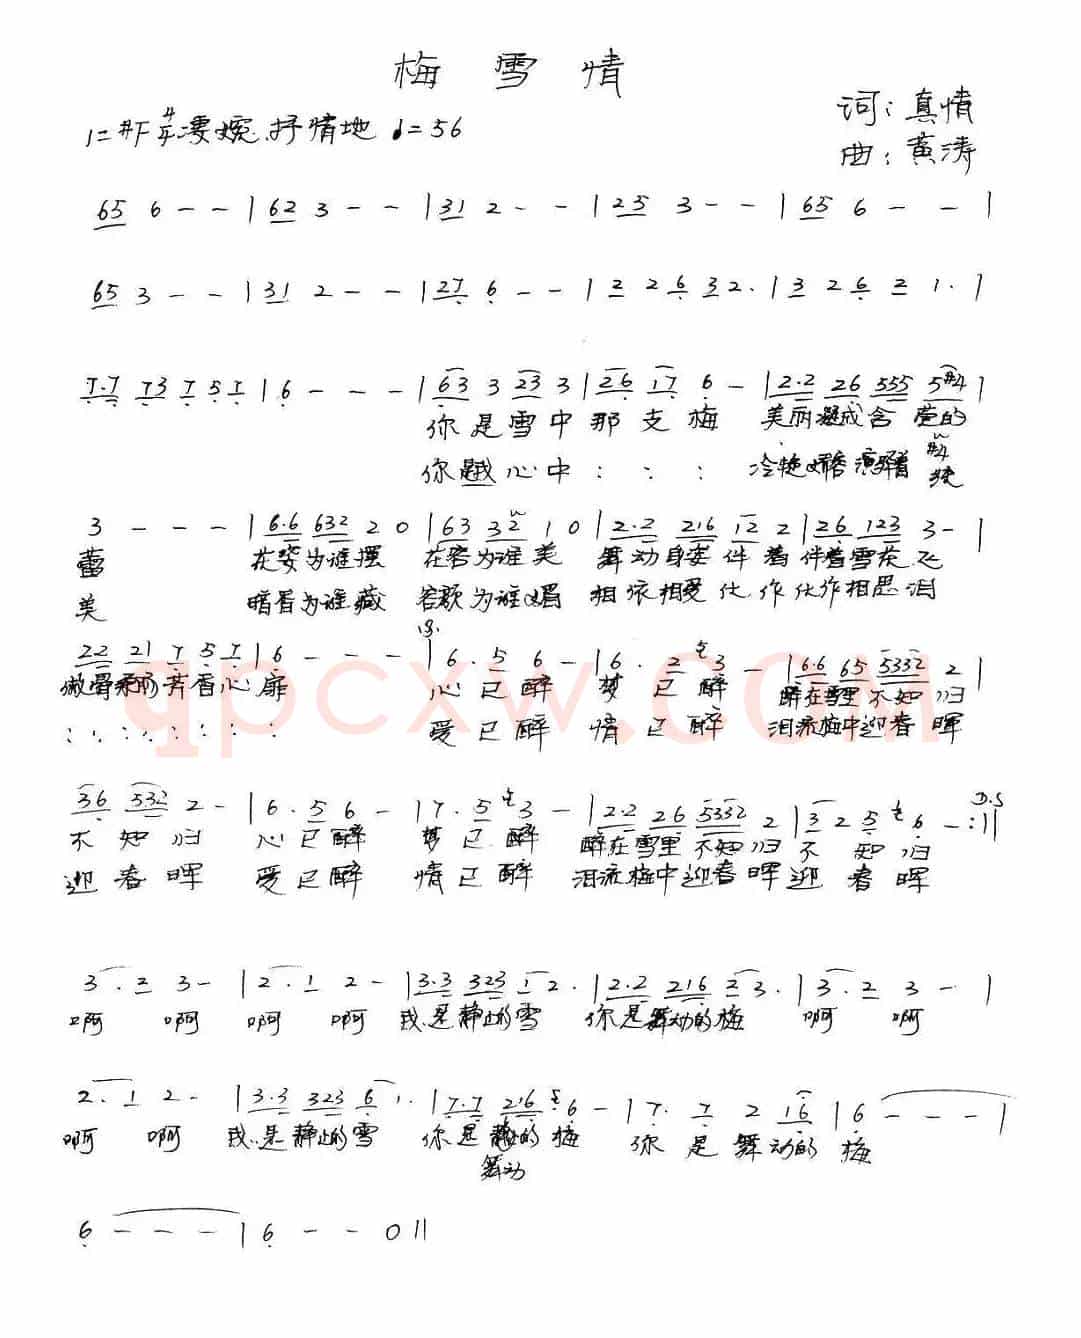 梅雪情
1=#F 4/4 凄婉.抒情地 ♩=56
词:真情
曲:黄涛
65 6 - - | 62 3 - - | 31 2 - - | 25 3 - - | 65 6 - - |
65 3 - - | 31 2 - - | 27 6 - - | 2 2 6 32. | 3 2 6 2 1. |
7.7 73 7 5 7 | 6 - - - | 63 3 23 3 | 26 17 6 - | 2.2 26 555 5#4 |
你是雪中那支梅 美丽凝成含苞的
你是我心中 : : : 冷艳 #4
3 - - - | 6.6 632 2 0 | 63 32 1 0 | 2.2 216 12 2 | 26 123 3 - |
蕾 在姿为谁摆 在容为谁美 舞动身姿伴着伴着雪花飞
美 暗香为谁藏 容颜为谁媚 相依相爱化作化作相思泪
22 21 7 5 7 | 6 - - - | 6. 5 6 - | 6. 2 3 - | 6.6 65 5332 2 |
傲骨 芳香心扉 心已醉 梦已醉 醉在雪里不知归
: : : : : : : 爱已醉 情已醉 泪流梅中迎春晖
36 532 2 - | 6. 5 6 - | 7. 5 3 - | 2.2 26 5332 2 | 3 2 5 6 - :|| D.S
不知归 心已醉 梦已醉 醉在雪里不知归不知归
迎春晖 爱已醉 情已醉 泪流梅中迎春晖迎春晖
3. 2 3 - | 2. 1 2 - | 3.3 323 1 2. | 2.2 216 2 3. | 3. 2 3 - |
啊 啊 啊 啊 我是静止的雪 你是舞动的梅 啊 啊
2. 1 2 - | 3.3 323 6 1. | 7.7 216 6 - | 7. 7 2 16 | 6 - - - |
啊 啊 我是静止的雪 你是 的梅 你是舞动的梅
舞动
6 - - - | 6 - - 0 ||
qpcxw.com